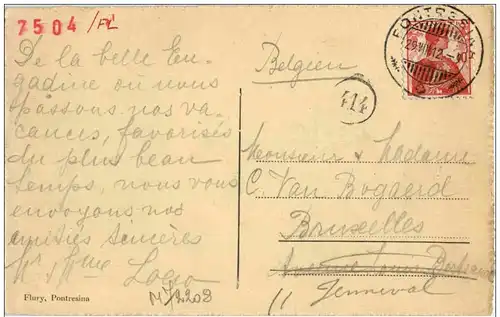 7504 /FL
De la belle En-
gadine où nous
passons nos va-
cances, favorisés
du plus beau
temps, nous vous
envoyons nos
amitiés sincères
Mr, Mme Logo
Flury, Pontresina
Belgien
414
PONTRESINA
29.VIII.12.-10
Monsieur & Madame
C. Van Bogaerd
Bruxelles
Avenue Louis
11 Jenneval